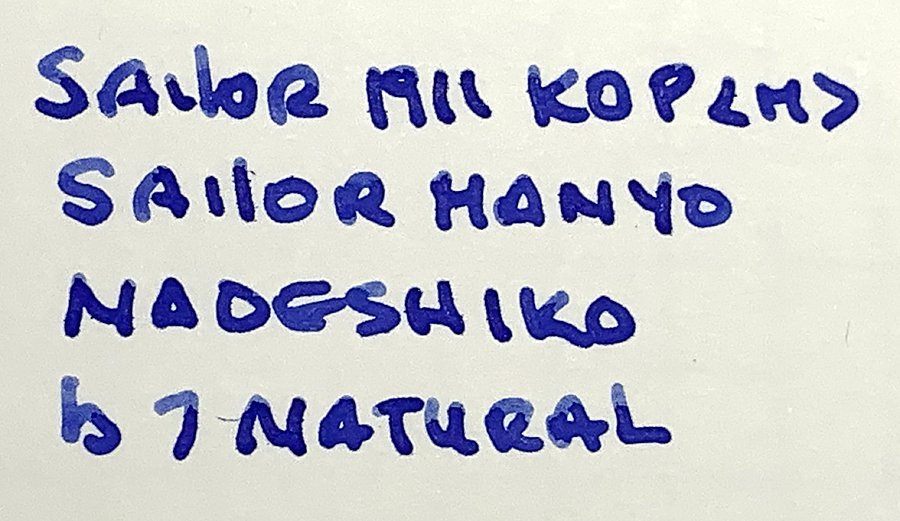 SAILOR 1911 KOP <M>
SAILOR MANYO
NADESHIKO
b7 NATURAL